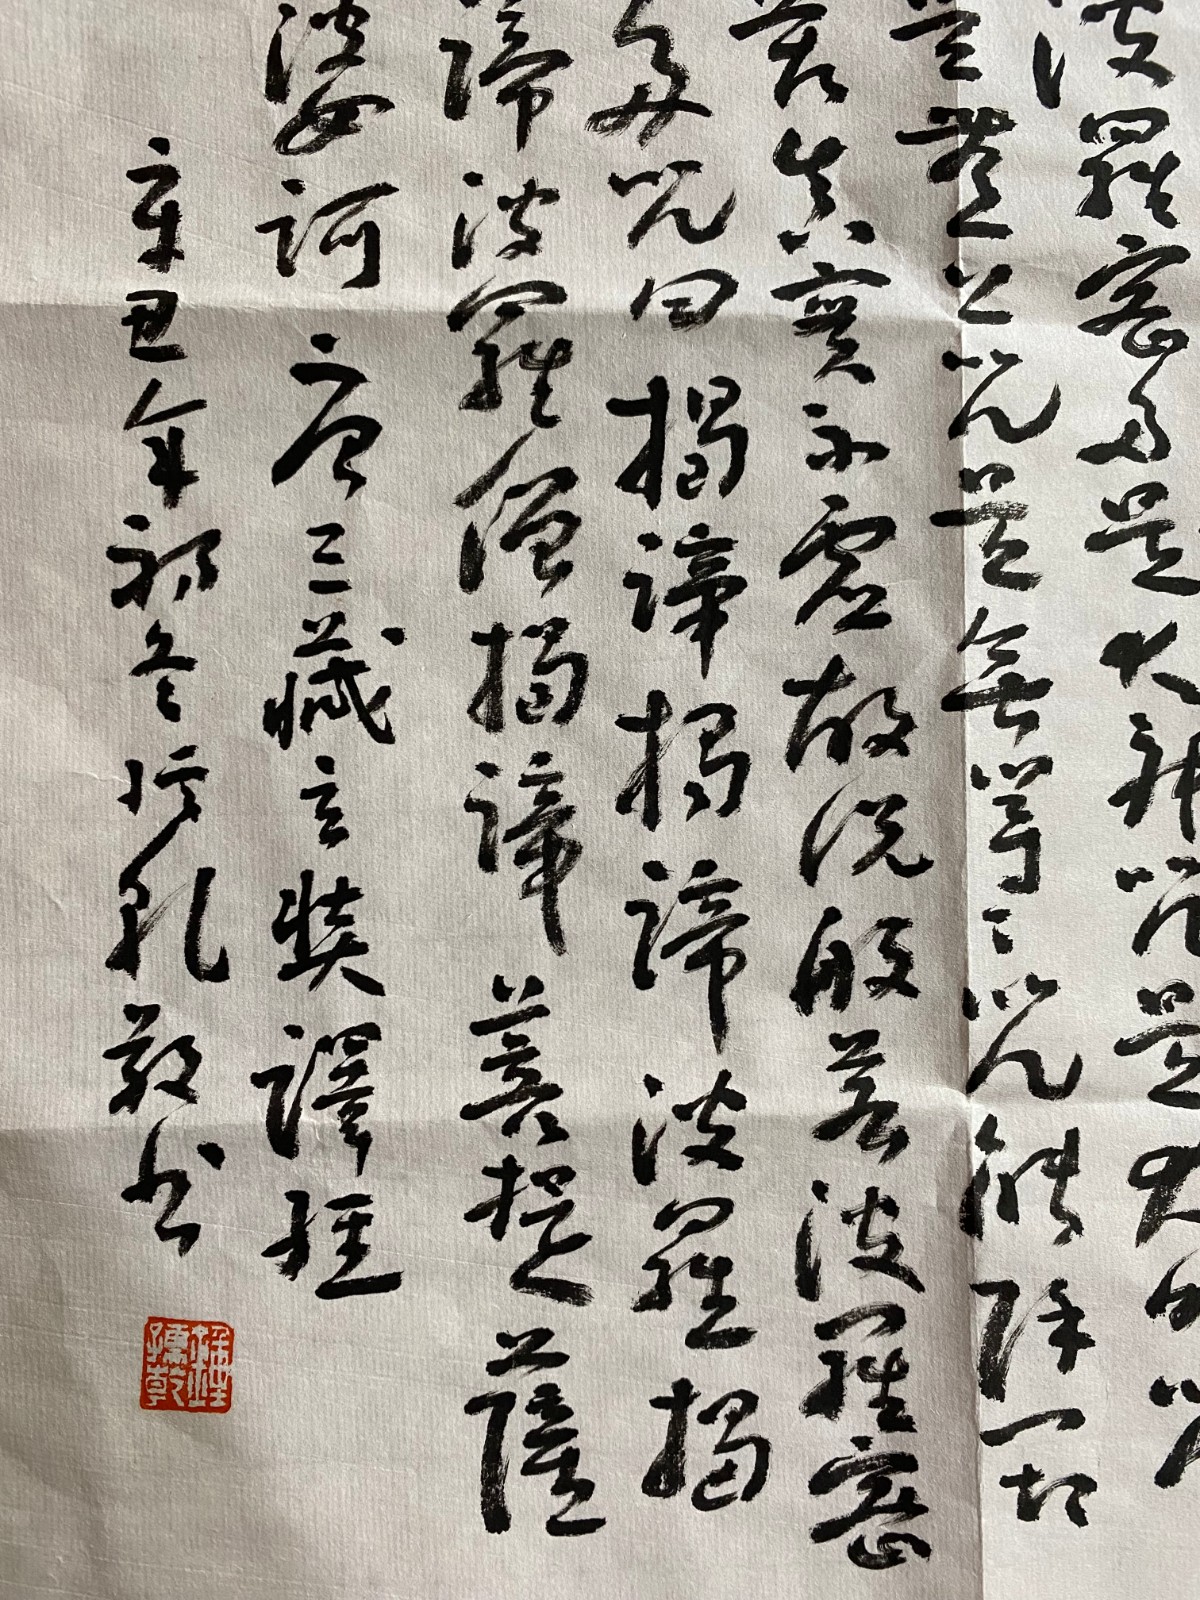 波羅蜜多是大神咒是大明咒
是無上咒是無等等咒能除一切
苦真實不虛故說般若波羅蜜
多咒曰揭諦揭諦波羅揭
諦波羅僧揭諦菩提薩
婆訶 唐三藏玄奘譯經
辛丑年初冬孫乾敬书